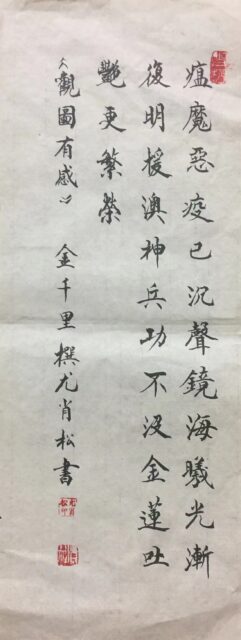 瘟魔惡疫已沉聲鏡海曦光漸
復明援澳神兵功不没金蓮吐
艷更繁榮
《觀圖有感》 金千里撰尤肖松書